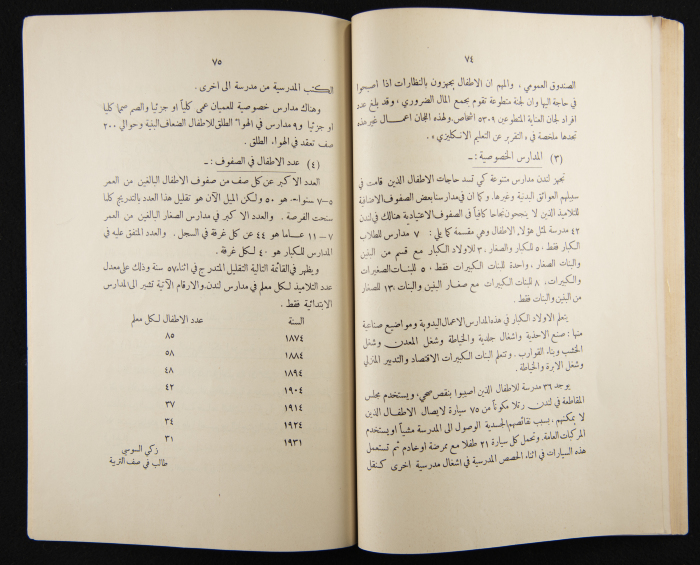 ٧٤
الصندوق العمومي ، والمهم ان الاطفال يجهزون بالنظارات اذا اصبحوا
في حاجة اليها وان لجنة متطوعة تقوم بجمع المال الضروري ، وقد بلغ عدد
افراد لجان العناية المتطوعين ٥٣٠٩ اشخاص ، ولهذه اللجان اعمال غير هذه
تجدها ملخصة في « التقرير عن التعليم الانكليزي » .
(٣) المدارس الخصوصية : ــ
تجهز لندن مدارس متنوعة كي تسد حاجات الاطفال الذين قامت في
سبيلهم العوائق البدنية وغيرها ، وكما ان في مدارسنا بعض الصفوف الاضافية
للتلاميذ الذين لا ينجحون نجاحا كافيا في الصفوف الاعتيادية هنالك في لندن
٤٢ مدرسة لمثل هؤلاء الاطفال وهي مقسمة كما يلي : ٧ مدارس للطلاب
الكبار فقط ، ٥ للكبار والصغار ، ٣ للاولاد الكبار مع قسم من البنين
والبنات الصغار ، واحدة للبنات الكبيرات فقط ، ٥ للبنات الصغيرات
والكبيرات ، ٨ للبنات الكبيرات مع صغار البنين والبنات ، ١٣ للصغار
من البنين والبنات فقط .
يتعلم الاولاد الكبار في هذه المدارس الاعمال اليدوية ومواضيع صناعية
منها : صنع الاحذية واشغال جلدية والخياطة وشغل المعدن وشغل
الخشب وبناء القوارب . وتتعلم البنات الكبيرات الاقتصاد والتدبير المنزلي
وشغل الابرة والخياطة .
يوجد ٣٦ مدرسة للاطفال الذين اصيبوا بنقص صحي ، ويستخدم مجلس
المقاطعة في لندن رتلا مكوناً من ٧٥ سيارة لايصال الاطفال الذين
لا يمكنهم ، بسبب نقائصهم الجسدية الوصول الى المدرسة مشياً او يستخدم
المركبات العامة . وتحمل كل سيارة ٢١ طفلا مع ممرضة او خادم ثم تستعمل
هذه السيارات في اثناء الحصص المدرسية في اشغال مدرسية اخرى كنقل
٧٥
الكتب المدرسية من مدرسة الى اخرى .
وهناك مدارس خصوصية للعميان عمى كلياً او جزئيا والصم صما كليا
او جزئيا و٩ مدارس في الهواء الطلق للاطفال الضعاف البنية وحوالي ٢٠٠
صف تعقد في الهواء الطلق .
(٤) عدد الاطفال في الصفوف : ــ
العدد الاكبر عن كل صف من صفوف الاطفال البالغين من العمر
٥ــ٧ سنوات هو ٥٠ ولكن الميل الآن هو تقليل هذا العدد بالتدريج كلما
سنحت الفرصة . والعدد الاكبر في مدارس الصغار البالغين من العمر
٧ ــ ١١ عاما هو ٤٤ عن كل غرفة في السجل . والعدد المتفق عليه في
المدارس للكبار هو ٤٠ لكل غرفة .
ويظهر في القائمة التالية التقليل المتدرج في اثناء ٥٧ سنة وذلك على معدل
عدد التلاميذ لكل معلم في مدارس لندن ، والارقام الآتية تشير الى المدارس
الابتدائية فقط .
السنة عدد الاطفال لكل معلم
١٨٧٤ ٨٥
١٨٨٤ ٥٨
١٨٩٤ ٤٨
١٩٠٤ ٤٢
١٩١٤ ٣٧
١٩٢٤ ٣٤
١٩٣١ ٣١
زكي السوسي
طالب في صف التربية